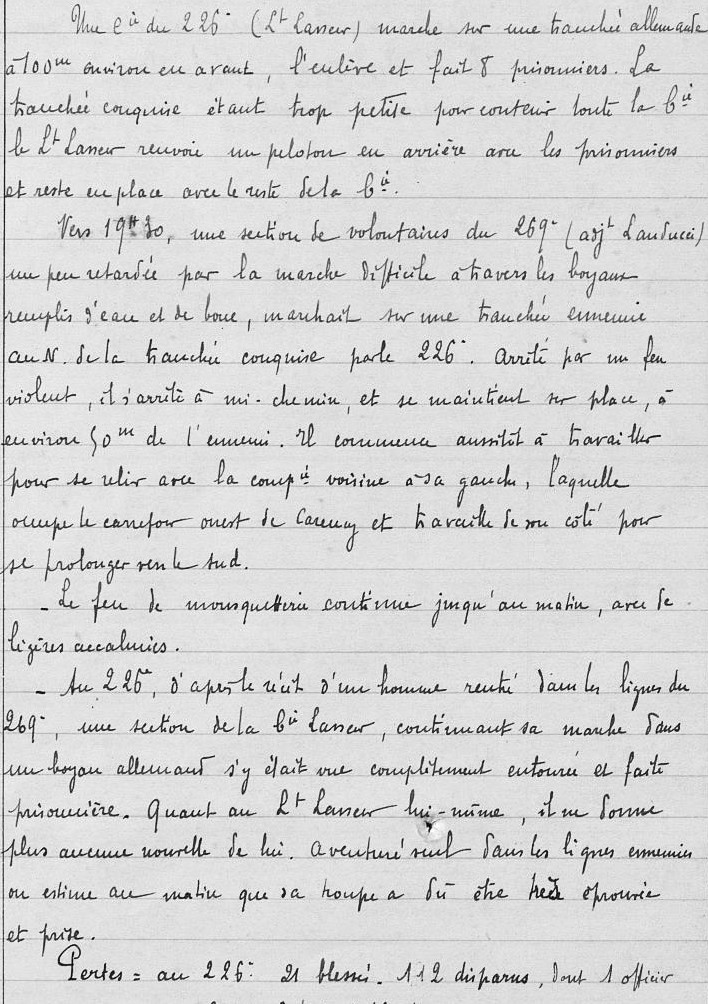 Une Cie du 226e (Lt Lasseur) marche sur une tranchée allemande
à 100m environ en avant, l'enlève et fait 8 prisonniers. La
tranchée conquise étant trop petite pour contenir toute la Cie
le Lt Lasseur renvoie un peloton en arrière avec les prisonniers
et reste en place avec le reste de la Cie.
Vers 19H30, une section de volontaires du 269e (adjt Landucci)
un peu retardée par la marche difficile à travers les boyaux
remplis d'eau et de boue, marchait sur une tranchée ennemie
au N. de la tranchée conquise par le 226e. Arrêté par un feu
violent, il s'arrête à mi-chemin, et se maintient sur place, à
environ 50m de l'ennemi. Il commence aussitôt à travailler
pour se relier avec la compie voisine à sa gauche, laquelle
occupe le carrefour ouest de Carency et travaille de son côté pour
se prolonger vers le sud.
- Le feu de mousquetterie continue jusqu'au matin, avec de
légères accalmies.
- Au 226e, d'après le récit d'un homme rentré dans les lignes du
269e, une section de la Cie Lasseur, continuant sa marche dans
un boyau allemand s'y était vue complètement entourée et faite
prisonnière. Quant au Lt Lasseur lui-même, il ne donne
plus aucune nouvelle de lui. Aventuré seul dans les lignes ennemies
on estime au matin que sa troupe a dû être très éprouvée
et prise.
Pertes = au 226e 21 blessés. 112 disparus, dont 1 officier